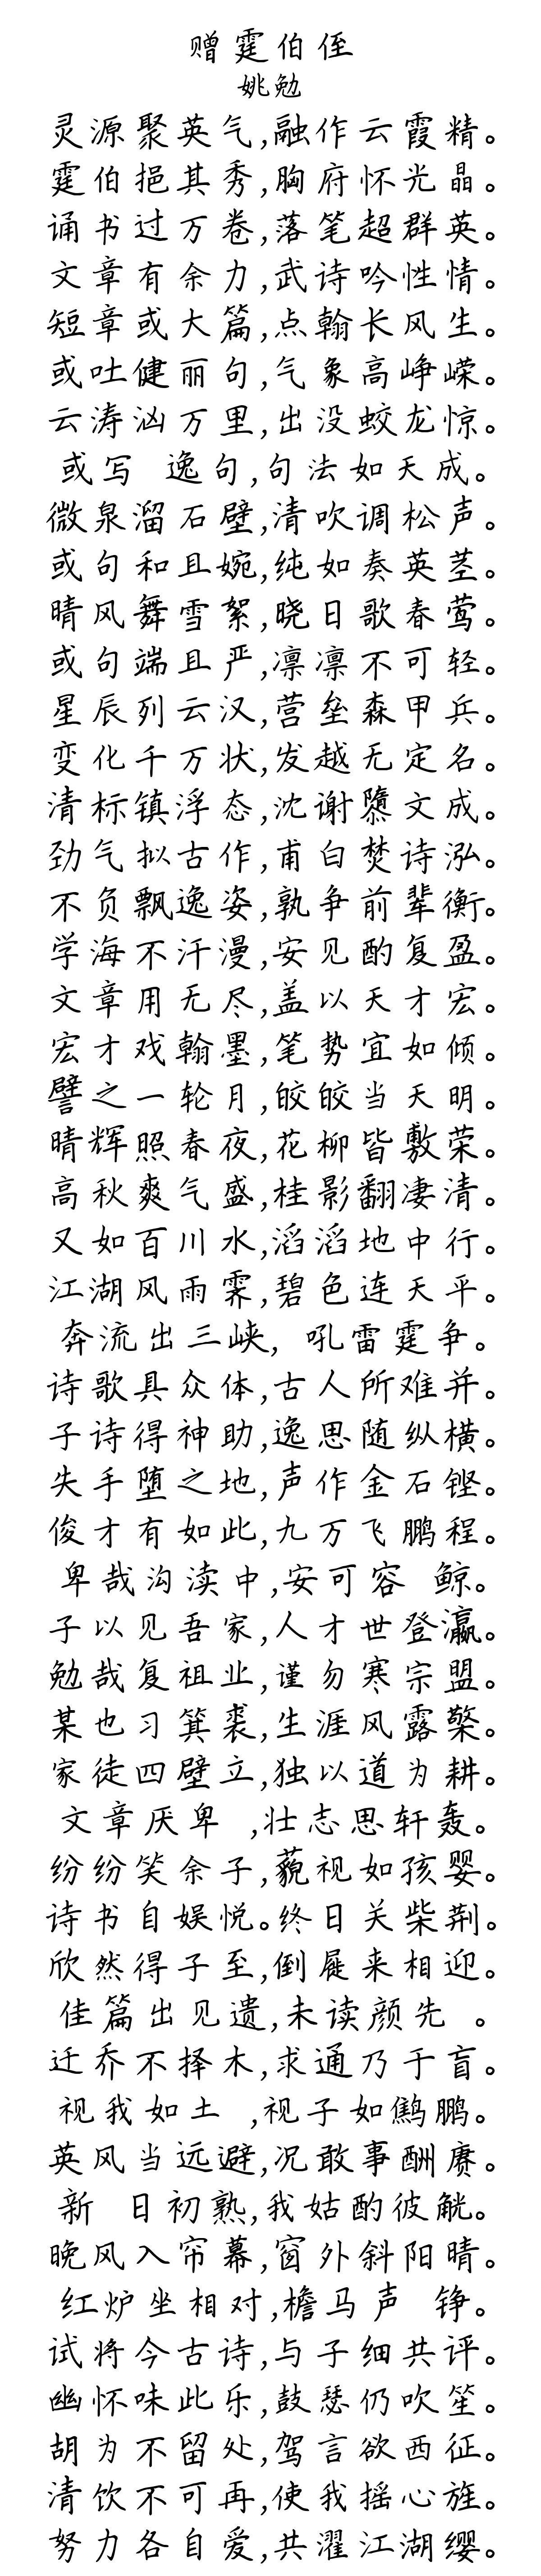 赠霆伯侄
姚勉
灵源聚英气,融作云霞精。
霆伯挹其秀,胸府怀光晶。
诵书过万卷,落笔超群英。
文章有余力,武诗吟性情。
短章或大篇,点翰长风生。
或吐健丽句,气象高峥嵘。
云涛汹万里,出没蛟龙惊。
或写 逸句,句法如天成。
微泉溜石壁,清吹调松声。
或句和且婉,纯如奏英茎。
晴风舞雪絮,晓日歌春莺。
或句端且严,凛凛不可轻。
星辰列云汉,营垒森甲兵。
变化千万状,发越无定名。
清标镇浮态,沈谢隳文成。
劲气拟古作,甫白焚诗泓。
不负飘逸姿,孰争前辈衡。
学海不汗漫,安见酌复盈。
文章用无尽,盖以天才宏。
宏才戏翰墨,笔势宜如倾。
譬之一轮月,皎皎当天明。
晴辉照春夜,花柳皆敷荣。
高秋爽气盛,桂影翻凄清。
又如百川水,滔滔地中行。
江湖风雨霁,碧色连天平。
奔流出三峡, 吼雷霆争。
诗歌具众体,古人所难并。
子诗得神助,逸思随纵横。
失手堕之地,声作金石铿。
俊才有如此,九万飞鹏程。
卑哉沟渎中,安可容 鲸。
子以见吾家,人才世登瀛。
勉哉复祖业,谨勿寒宗盟。
某也习箕裘,生涯风露檠。
家徒四壁立,独以道为耕。
文章厌卑 ,壮志思轩轰。
纷纷笑余子,藐视如孩婴。
诗书自娱悦。终日关柴荆。
欣然得子至,倒屣来相迎。
佳篇出见遗,未读颜先 。
迁乔不择木,求通乃于盲。
视我如土 ,视子如鹪鹏。
英风当远避,况敢事酬赓。
新 日初熟,我姑酌彼觥。
晚风入帘幕,窗外斜阳晴。
红炉坐相对,檐马声 铮。
试将今古诗,与子细共评。
幽怀味此乐,鼓瑟仍吹笙。
胡为不留处,驾言欲西征。
清饮不可再,使我摇心旌。
努力各自爱,共濯江湖缨。